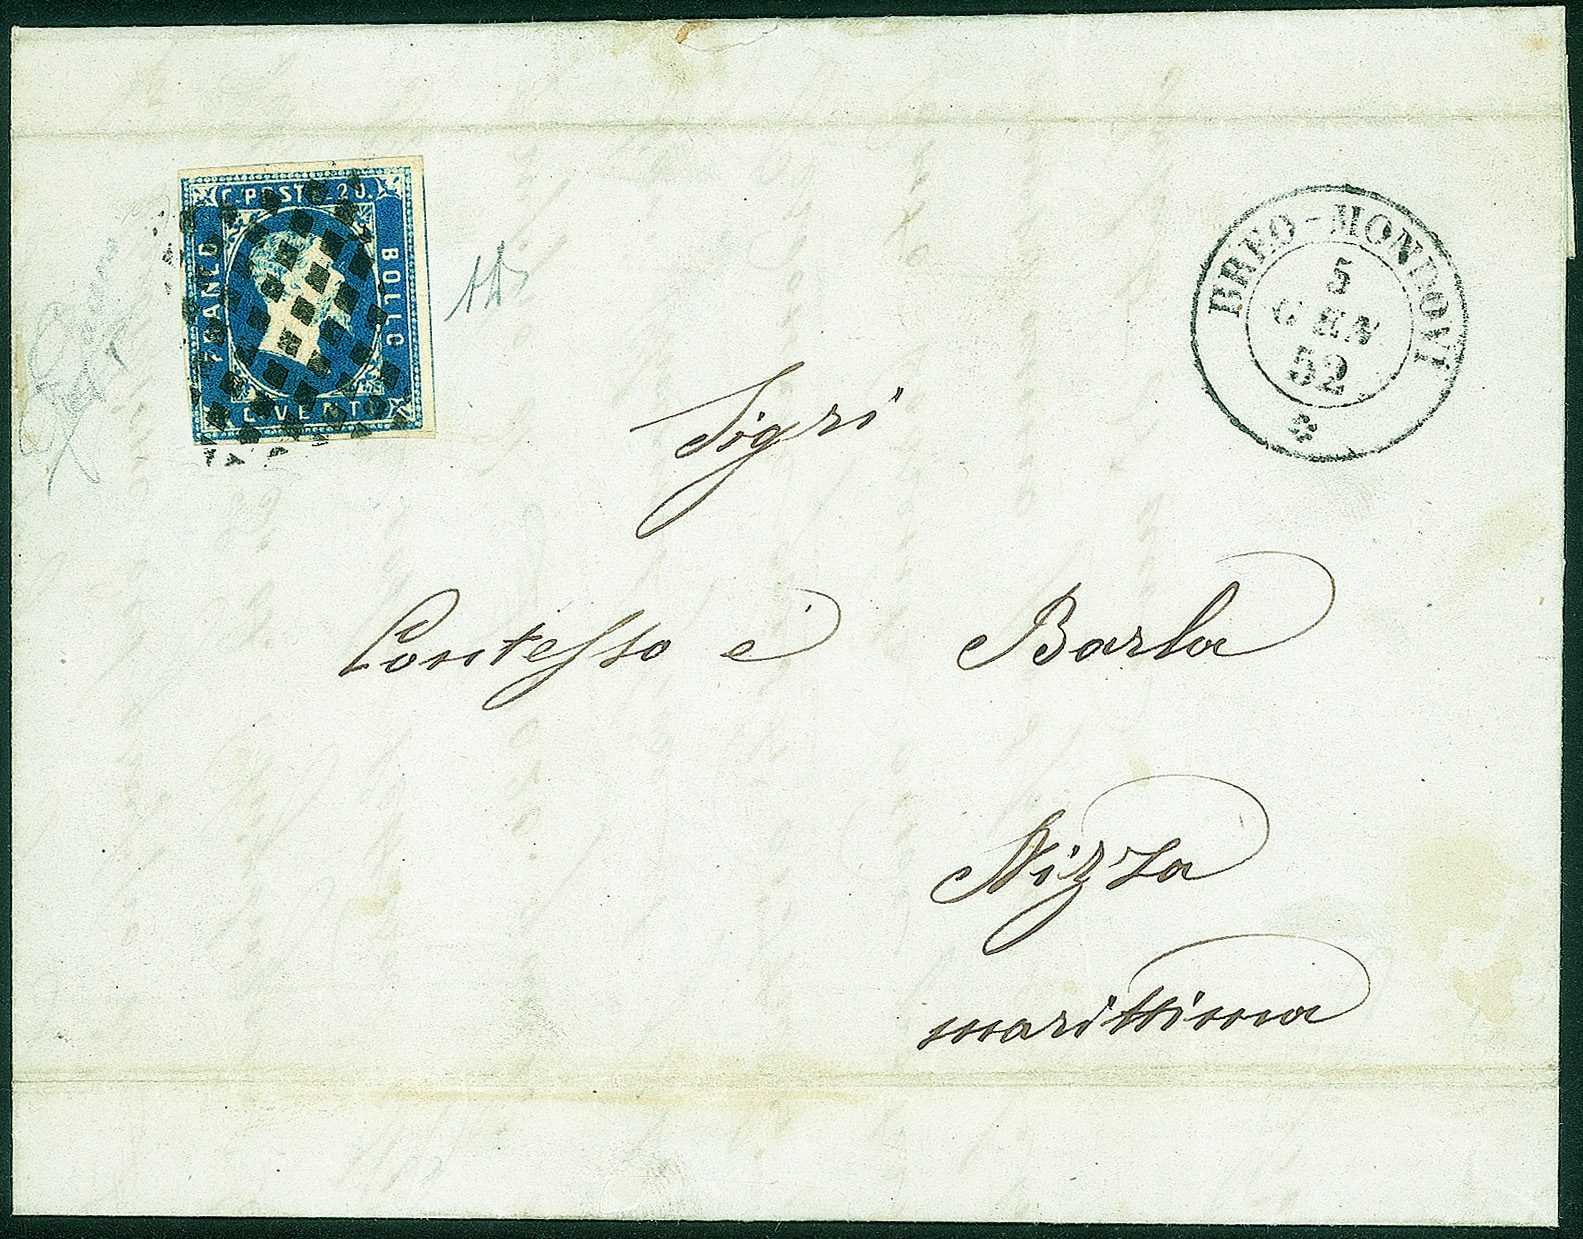 C. POSTE 20.
FRANCO
BOLLO
C. VENTI
BREO-MONDOVI
5
GEN
52
Sigri
Contesso e Barla
Nizza
marittima